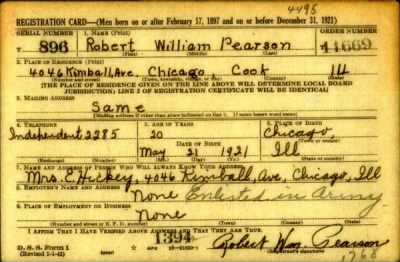 4495
REGISTRATION CARD—(Men born on or after February 17, 1897 and on or before December 31, 1921)
SERIAL NUMBER 1. NAME (Print) ORDER NUMBER
T 896 Robert William Pearson 11669
2. PLACE OF RESIDENCE (Print)
4046 Kimball Ave, Chicago Cook Ill
(Number and street) (Town, township, village, or city) (County) (State)
[THE PLACE OF RESIDENCE GIVEN ON THE LINE ABOVE WILL DETERMINE LOCAL BOARD
JURISDICTION; LINE 2 OF REGISTRATION CERTIFICATE WILL BE IDENTICAL]
3. MAILING ADDRESS
Same
[Mailing address if other than place indicated on line 2. If same insert word same]
4. TELEPHONE 5. AGE IN YEARS 6. PLACE OF BIRTH
Independent 2285 20 Chicago,
DATE OF BIRTH (Town or county)
May 21 1921 Ill
(Exchange) (Number) (Mo.) (Day) (Yr.) (State or country)
7. NAME AND ADDRESS OF PERSON WHO WILL ALWAYS KNOW YOUR ADDRESS
Mrs. C Hickey, 4046 Kimball Ave, Chicago, Ill
8. EMPLOYER'S NAME AND ADDRESS
None Enlisted in Army
9. PLACE OF EMPLOYMENT OR BUSINESS
None
(Number and street or R. F. D. number) (Town) (County) (State)
I AFFIRM THAT I HAVE VERIFIED ABOVE ANSWERS AND THAT THEY ARE TRUE.
D. S. S. Form 1 1394 Robert Wm. Pearson
(Revised 1-1-42) (Registrant's signature)
1768